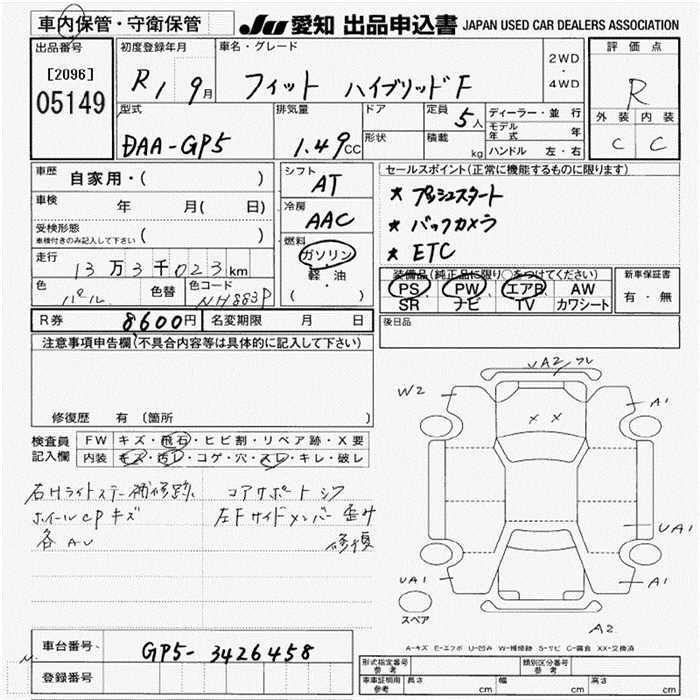 車内保管・守衛保管
JU 愛知 出品申込書 JAPAN USED CAR DEALERS ASSOCIATION
出品番号 初度登録年月 車名・グレード 評価点
[2096] R1 9月 フィット ハイブリッドF 2WD・4WD R
05149 型式 排気量 ドア 定員 5人 ディーラー・並行 外装 内装
モデル年式 年
DAA-GP5 1.49CC 形状 積載 kg ハンドル 左・右 C C
車歴 自家用・( ) シフト AT セールスポイント(正常に機能するものに限ります)
★ プッシュスタート
車検 年 月( 日) 冷房 AAC ★ バックカメラ
受検形態 ( )
車検付きのみ記入して下さい
燃料 ガソリン・軽油 ( ) ★ ETC
走行 13万3千023km 装備品(純正品に限り○をつけてください) 新車保証書
色 パール 色替 色コード NH883P PS PW エアB AW 有・無
SR ナビ TV カワシート
R券 8600円 名変期限 月 日 後日品
注意事項申告欄(不具合内容等は具体的に記入して下さい)
修復歴 有 (箇所
検査員 FW キズ・飛石・ヒビ割・リペア跡・X要
記入欄 内装 キズ・汚レ・コゲ・穴・スレ・キレ・破レ
右Hライトステー補修跡 コアサポートシワ
ホイールcPキズ 左Fサイドメンバー歪み
各AU 修復
UA2 ワレ
W2 A1
X X
UA1
UA1 A1
スペア
A2
A-キズ E-エクボ U-凹み W-補修跡 S-サビ C-腐食 XX-交換済
車台番号 GP5-3426458
登録番号
形式指定番号 参考 類別区分番号 参考
車庫証明用 参考 長さ cm 幅 cm 高さ cm